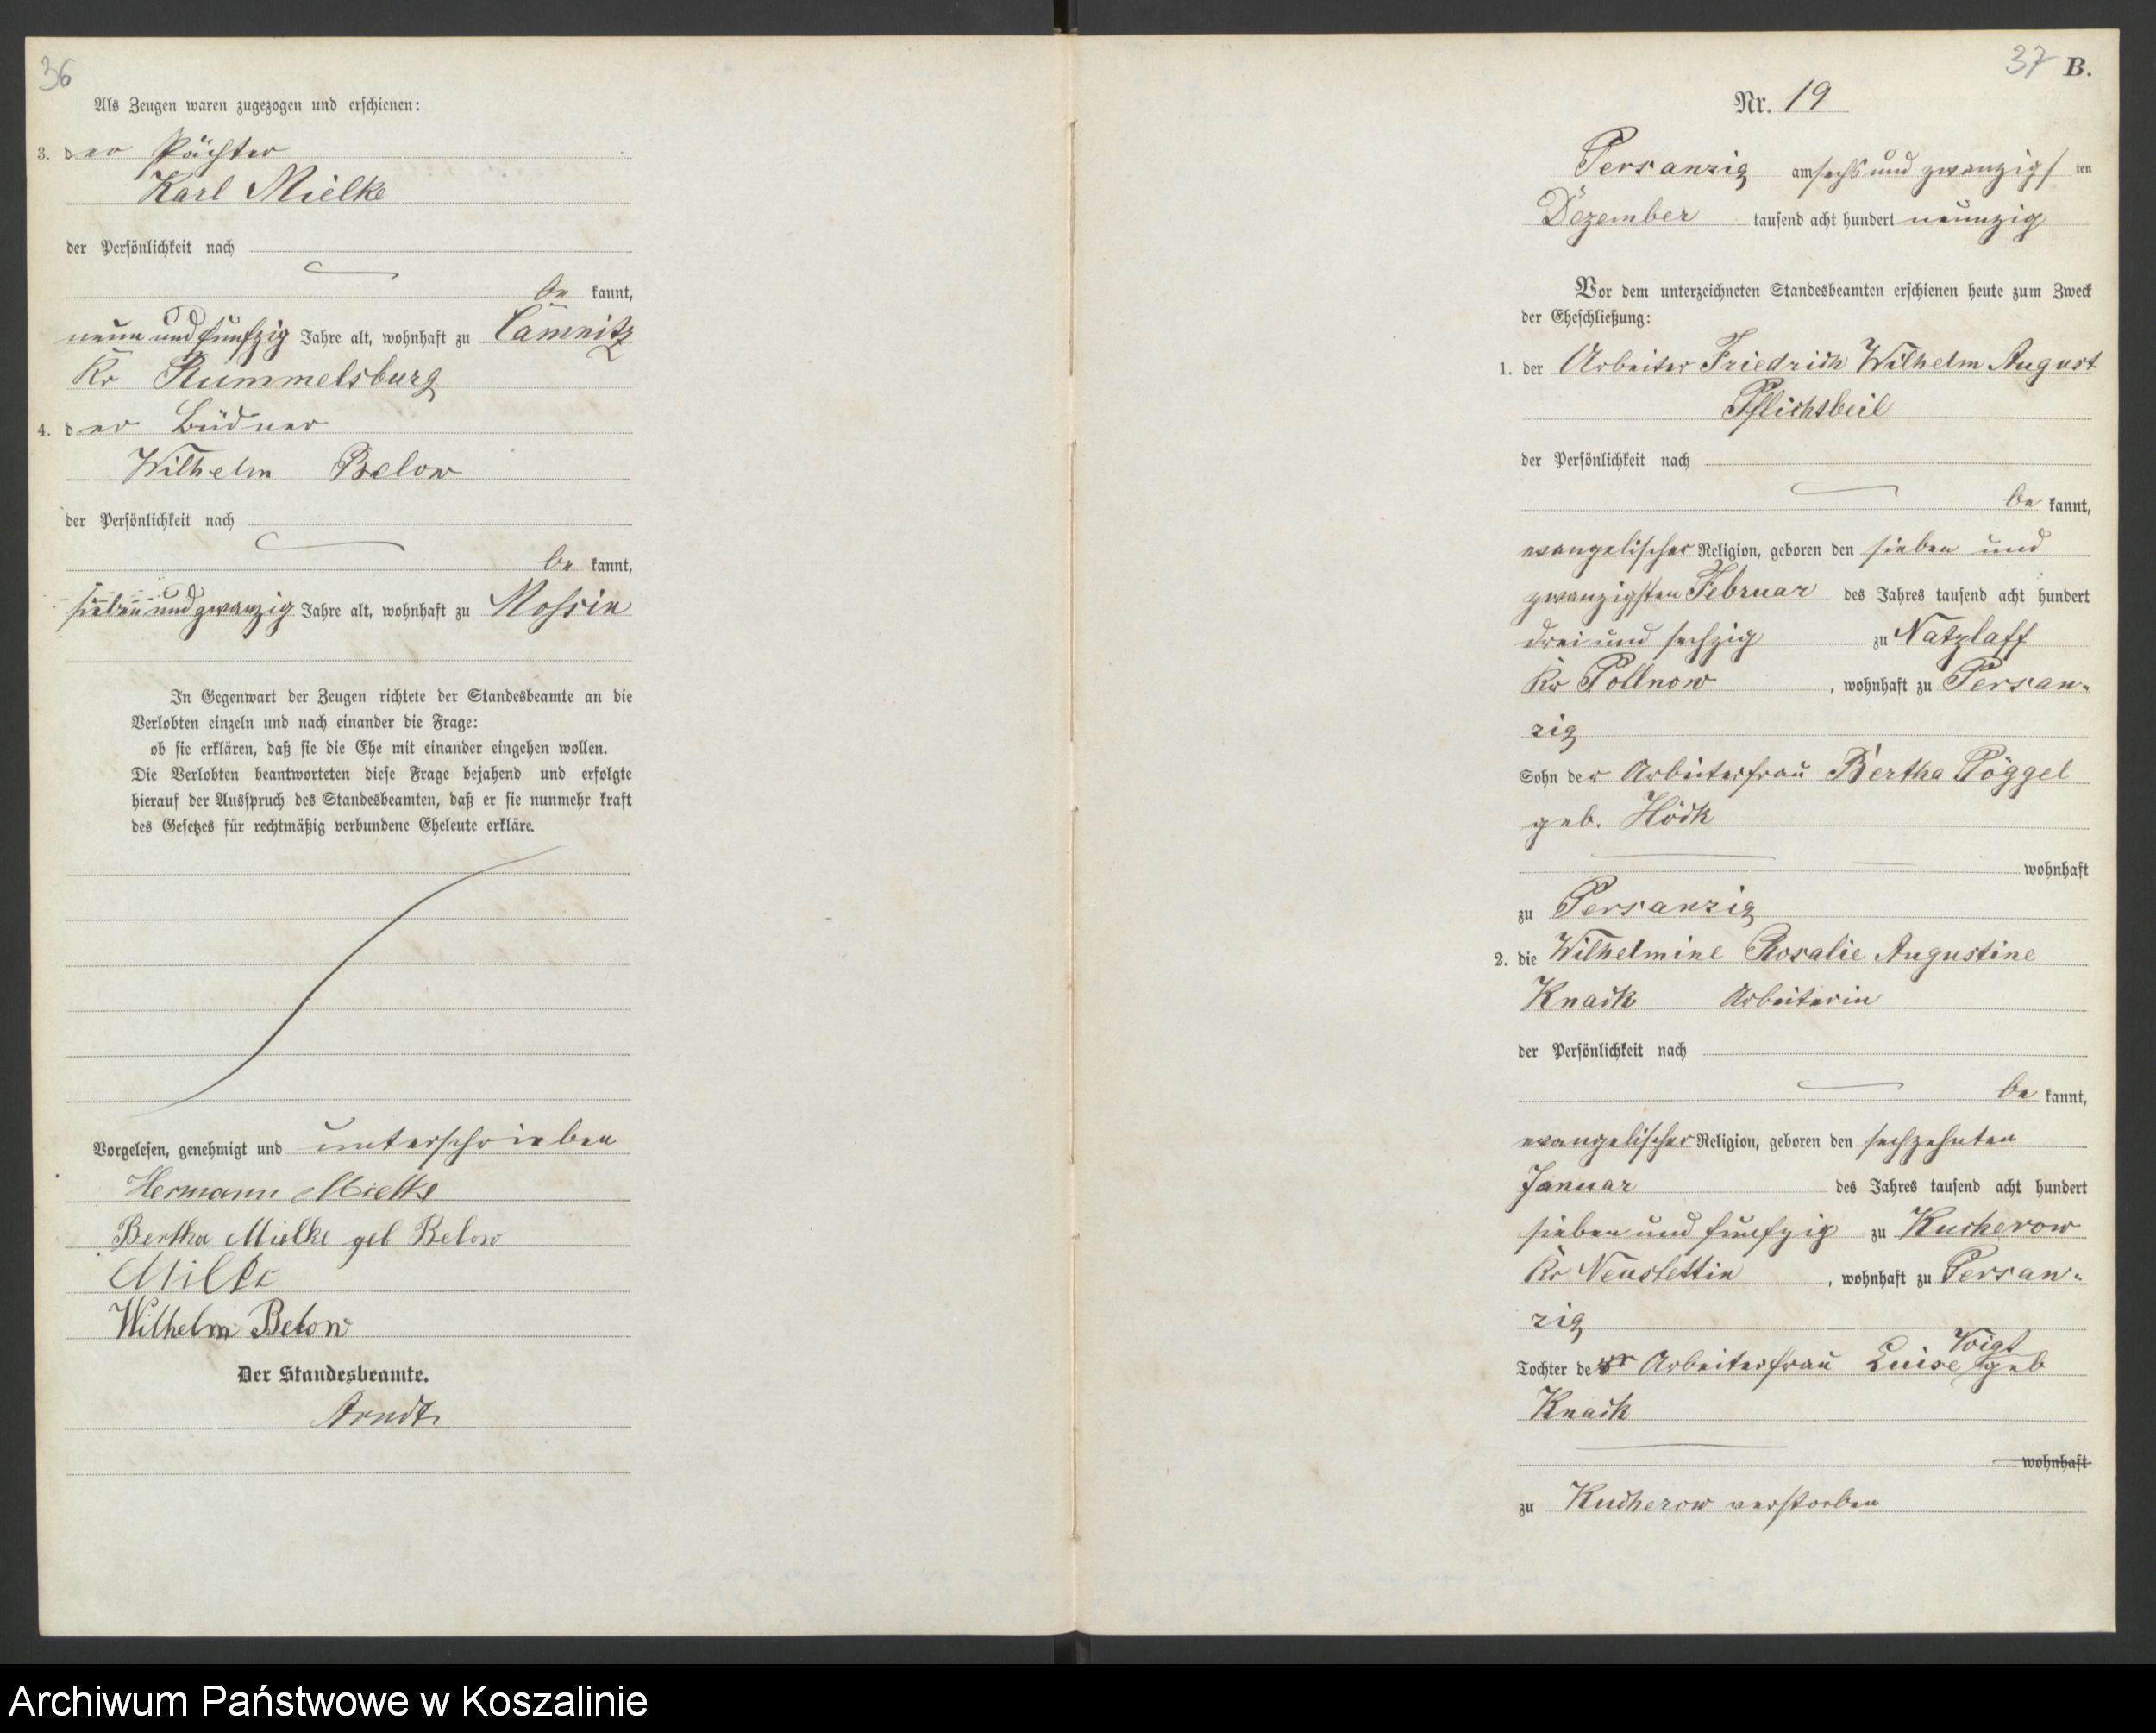 36
Als Zeugen waren zugezogen und erschienen:
3. der Pächter
Karl Mielke
der Persönlichkeit nach
be kannt,
neun und fünfzig Jahre alt, wohnhaft zu Camnitz
Kr Rummelsburg
4. der Büdner
Wilhelm Below
der Persönlichkeit nach
be kannt,
sieben und zwanzig Jahre alt, wohnhaft zu Mossin
In Gegenwart der Zeugen richtete der Standesbeamte an die
Verlobten einzeln und nach einander die Frage:
ob sie erklären, daß sie die Ehe mit einander eingehen wollen.
Die Verlobten beantworteten diese Frage bejahend und erfolgte
hierauf der Ausspruch des Standesbeamten, daß er sie nunmehr kraft
des Gesetzes für rechtmäßig verbundene Eheleute erkläre.
Vorgelesen, genehmigt und unterschrieben
Hermann Mielke
Bertha Mielke geb Below
Milke
Wilhelm Below
Der Standesbeamte.
Arndt
37 B.
Nr. 19
Persanzig am sechs und zwanzigs ten
Dezember tausend acht hundert neunzig
Vor dem unterzeichneten Standesbeamten erschienen heute zum Zweck
der Eheschließung:
1. der Arbeiter Friedrich Wilhelm August
Pflichtbeil
der Persönlichkeit nach
be kannt,
evangelischer Religion, geboren den sieben und
zwanzigsten Februar des Jahres tausend acht hundert
drei und sechzig zu Natzlaff
Kr Pollnow, wohnhaft zu Persan-
zig
Sohn der Arbeiterfrau Bertha Pöggel
geb. Höck
wohnhaft
zu Persanzig
2. die Wilhelmine Rosalie Augustine
Knack Arbeiterin
der Persönlichkeit nach
be kannt,
evangelischer Religion, geboren den sechzehnten
Januar des Jahres tausend acht hundert
sieben und fünfzig zu Kucherow
Kr Neustettin, wohnhaft zu Persan-
zig
Tochter der Arbeiterfrau Luise Voigt geb
Knack
wohnhaft
zu Kucherow verstorben
Archiwum Państwowe w Koszalinie